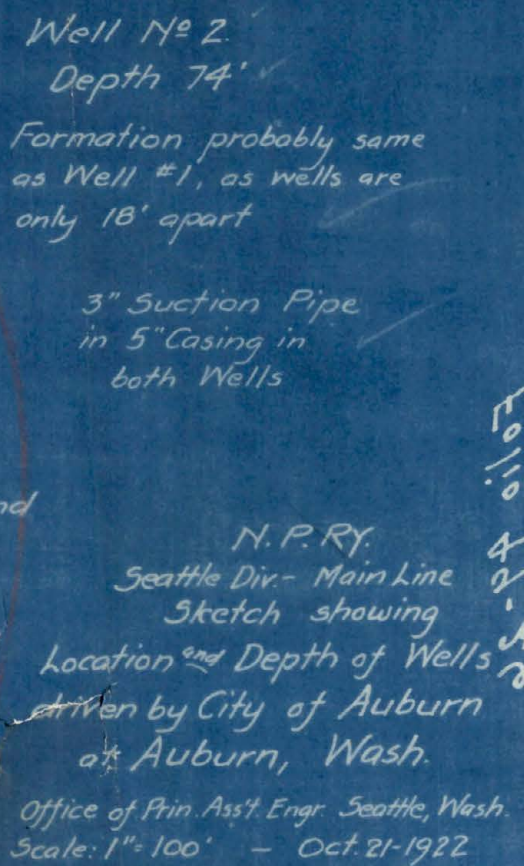 Well Nº 2.
Depth 74'
Formation probably same
as Well #1, as wells are
only 18' apart
3" Suction Pipe
in 5" Casing in
both Wells
nd
N. P. RY.
Seattle Div.- Main Line
Sketch showing
Location and Depth of Wells
driven by City of Auburn
at Auburn, Wash.
Office of Prin. Ass't. Engr. Seattle, Wash.
Scale: 1"= 100' - Oct. 21-1922
Folio